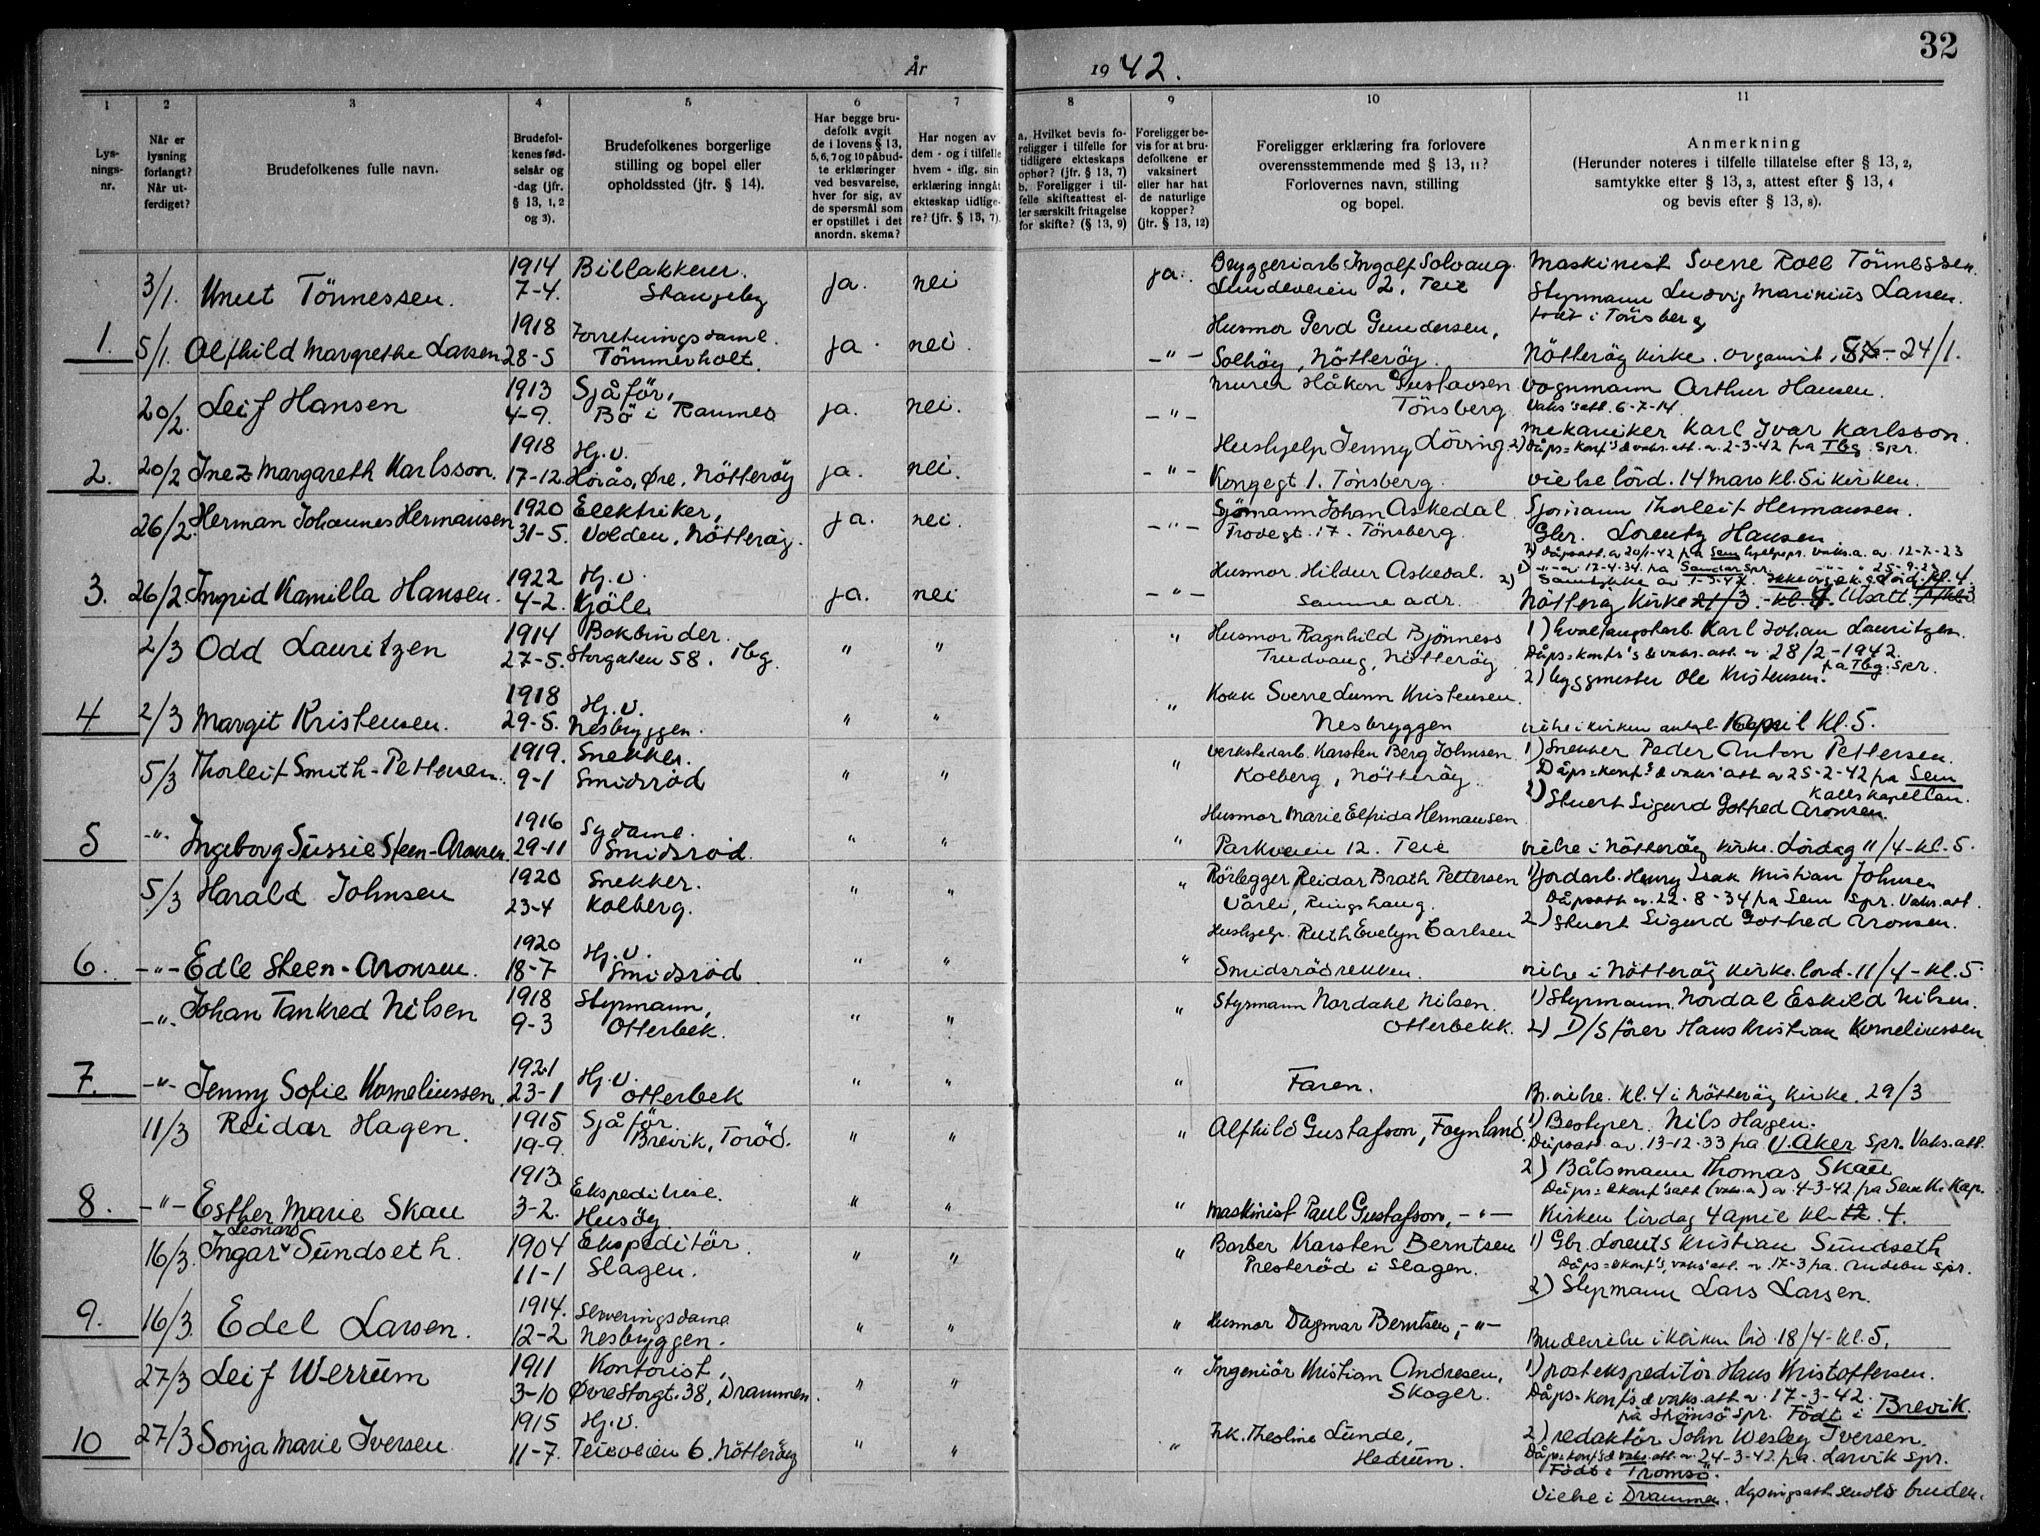 32
År 1942.
1 2 3 4 5 6 7 8 9 10 11
Lys-
nings-
nr.
Når er
lysning
forlangt?
Når ut-
ferdiget?
Brudefolkenes fulle navn.
Brudefol-
kenes fød-
selsår og
-dag (jfr.
§ 13, 1, 2
og 3).
Brudefolkenes borgerlige
stilling og bopel eller
opholdssted (jfr. § 14).
Har begge bru-
defolk avgit
de i lovens § 13,
5, 6, 7 og 10 påbud-
te erklæringer
ved besvarelse,
hver for sig, av
de spørsmål som
er opstillet i det
anordn. skema?
Har nogen av
dem - og i tilfelle
hvem - iflg. sin
erklæring inngått
ekteskap tidlige-
re? (jfr. § 13, 7).
a. Hvilket bevis fo-
religger i tilfelle for
tidligere ekteskaps
ophør? (jfr. § 13, 7)
b. Foreligger i til-
felle skifteattest el-
ler særskilt fritagelse
for skifte? (§ 13, 9)
Foreligger be-
vis for at bru-
defolkene er
vaksinert
eller har hat
de naturlige
kopper?
(jfr. § 13, 12)
Foreligger erklæring fra forlovere
overensstemmende med § 13, 11?
Forlovernes navn, stilling
og bopel.
Anmerkning
(Herunder noteres i tilfelle tillatelse efter § 13, 2,
samtykke efter § 13, 3, attest efter § 13, 4
og bevis efter § 13, 8).
3/1. Knut Tönnessen. 1914 7-4. Billakkerer. Skangeby ja. nei ja. Bryggeriarb. Ingolf Solvang.
Lundeveien 2. Teie
Maskinist Sverre Roll Tönnessen.
Styrmann Ludvig Marinius Larsen.
födt i Tönsberg
1. 5/1. Alfhild Margrethe Larsen 1918 28-5 Forretningsdame. Tömmerholt. ja. nei. -"- Husmor Gerd Gundersen,
Solhög, Nötteröy.
Nötteröy kirke. organist, - 24/1.
20/2. Leif Hansen 1913 4-9. Sjåför, Bö i Raumnes ja. nei. -"- Murer Håkon Gustavsen
Tönsberg
Vognmann Arthur Hansen.
Vaks'att. 6-7-14.
2. 20/2 Inez Margareth Karlsson. 1918 17-12. Hj.v. Hoiås, Øre, Nötteröy ja. nei. -"- Hushjelp Jenny Lövring.
Kongegt 1. Tönsberg.
Mekaniker Karl Ivar Karlsson.
2) Dåps= konf's & vaks. att. av 2-3-42 fra Tbg. spr.
vielse lörd. 14 mars kl. 5 i kirken.
26/2. Herman Johannes Hermansen 1920 31-5. Elektriker, Volden, Nötteröy. ja. nei. -"- Sjömann Johan Askedal
Trovegt. 17. Tönsberg.
Sjömann Thorleif Hermansen.
Gbr. Lorentz Hansen
1) Dåpsatt. av 20/1-42 fra Sem hjelpespr. vaks.a. av 12-7-23
3. 26/2. Ingrid Kamilla Hansen. 1922 4-2. Hj.v. Kjöle. ja. nei -"- Husmor Hildur Askedal.
Samme adr.
2) -"- av 17-4-34. fra Sandar spr.
Samtykke av 1-3-42. Lörd. kl. 4.
Nötteröy Kirke 21/3. - kl.
2/3 Odd Lauritzen 1914 27-5. Bokbinder. Storgaten 58. Tbg. " " " Husmor Ragnhild Bjönness
Trudvang, Nötteröy
1) hvalfangstarb. Karl Johan Lauritzen.
Dåps= konf's & vaks. att. av 28/2-1942.
fra Tbg. spr.
4. 2/3 Margit Kristensen. 1918 29-5. Hj.v. Nesbryggen. " " " Kokk Sverre Lunn Kristensen
Nesbryggen
2) byggmester Ole Kristensen.
vielse i kirken april kl. 5.
5/3 Thorleif Smith-Pettersen. 1919. 9-1 Snekker. Smidsröd " " " Verkstedarb. Karsten Berg Johnsen
Kolberg, Nötteröy.
1) Snekker Peder Anton Pettersen.
Dåps= konf's & vaks'att av 25-2-42 fra Sem
kallskapellan.
5 -"- Ingeborg Sussie Steen-Aronsen 1916 29-11 Sydame. Smidsröd. " " " Husmor Marie Elfrida Hermansen
Parkveien 12. Teie
2) Stuert Sigurd Gotfred Aronsen.
vielse i Nötteröy kirke. Lördag 11/4 - kl. 5.
5/3 Harald Johnsen 1920 23-4 Snekker. Kolberg. " " " Rörlegger Reidar Brath Pettersen
Vårli, Ringshaug.
1) Jordarb. Henry Isak Kristian Johnsen
Dåpsatt. av. 22-8-34 fra Sem spr. Vaks. att.
6. -"- Edle Steen-Aronsen. 1920 18-7 Hj.v. Smidsröd " " " Hushjelp. Ruth Evelyn Carlsen
Smidsrödrekken.
2) Stuert Sigurd Gotfred Aronsen.
vielse i Nötteröy kirke. lörd. 11/4 - kl. 5
-"- Johan Tankred Nilsen 1918 9-3 Styrmann, Otterbek. " " " Styrmann Nordahl Nilsen.
Otterbekk.
1) Styrmann Nordal Eskild Nilsen.
2) D/S förer Hans Kristian Korneliussen
7. -"- Jenny Sofie Korneliussen. 1921 23-1 Hj.v. Otterbek " " " Faren.
Br.vielse. kl. 4 i Nötteröy kirke. 29/3
11/3 Reidar Hagen. 1915 19-9. Sjåför. Brevik, Toröd. " " " Alfhild Gustafson, Føynland.
1) Bestyrer. Nils Hagen.
Dåpsatt. av. 13-12-33 fra V. Aker spr. Vaks. att.
8. -"- Esther Marie Skau 1913 3-2. Ekspeditrise. Husöy. " " " Maskinist Paul Gustafson, -"-
2) Båtsmann Thomas Skau
Dåps= & konf'satt (vaks.a) av 4-3-42 fra Sem kl. kap.
Kirken lördag 4 april kl. 4.
16/3. Ingar Leonard Sundseth. 1904 11-1 Ekspeditör. Slagen. " " " Barber Karsten Berntsen
Presteröd i Slagen.
1) Gbr. Lorents Kristian Sundseth
Dåps= & konf's, vaks'att. av 17-3 fra. Andebu spr.
9. 16/3. Edel Larsen. 1914. 12-2 Serveringsdame Nesbryggen. " " " Husmor Dagmar Berntsen, -"-
2) Styrmann Lars Larsen.
Brudevielse i kirken lörd. 18/4 - kl. 5.
27/3 Leif Werrum 1911 3-10 Kontorist, Øvre Storgt. 38, Drammen. " " " Ingeniör Kristian Andresen,
Skoger.
1) postekspeditör Hans Kristoffersen.
Dåps= konf's & vaks. att av. 17-3-42.
fra Strömsö spr. Födt i Brevik.
10 27/3 Sonja Marie Iversen 1915 11-7. Hj.v. Teieveien 6. Nötteröy " " " Frk. Theoline Lunde,
Hedrum.
2) redaktör John Wesley Iversen.
Dåps= konf's & vaks. att. av 24-3-42 fra. Larvik spr.
Födt i Tromsö.
Vielse i Drammen. Lysningsatt. sendt bruden.